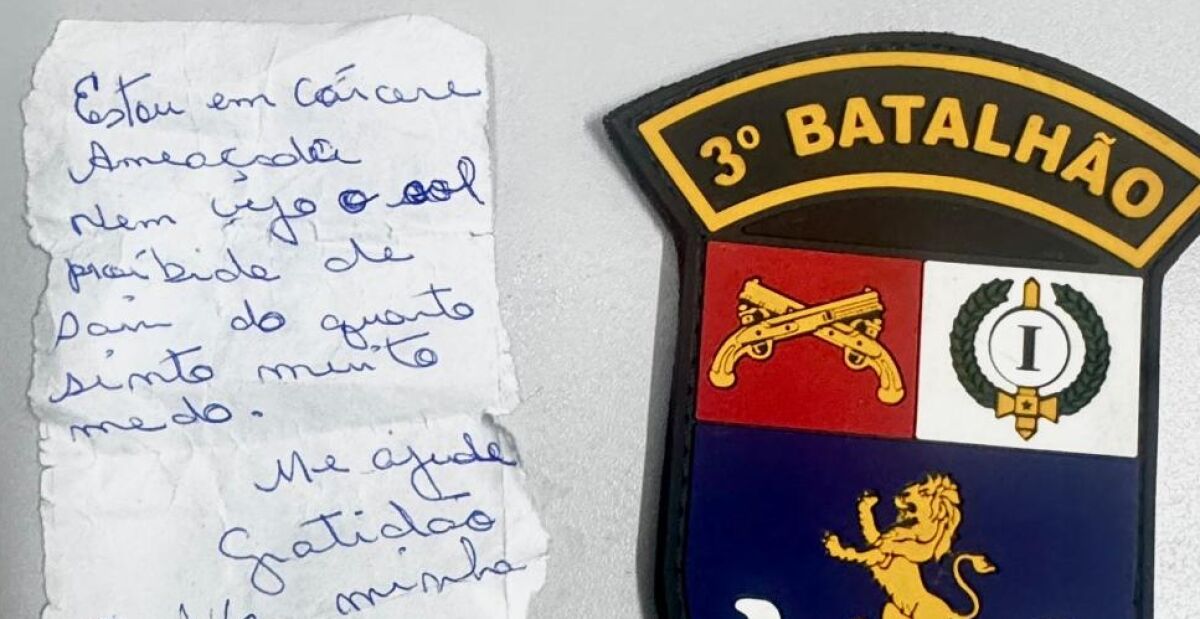 Estou em Cárcere
Ameaçada
Nem vejo o sol
proibida de
sair do quarto
sinto muito
medo.
Me ajude
Gratidão
minha
3º BATALHÃO
I